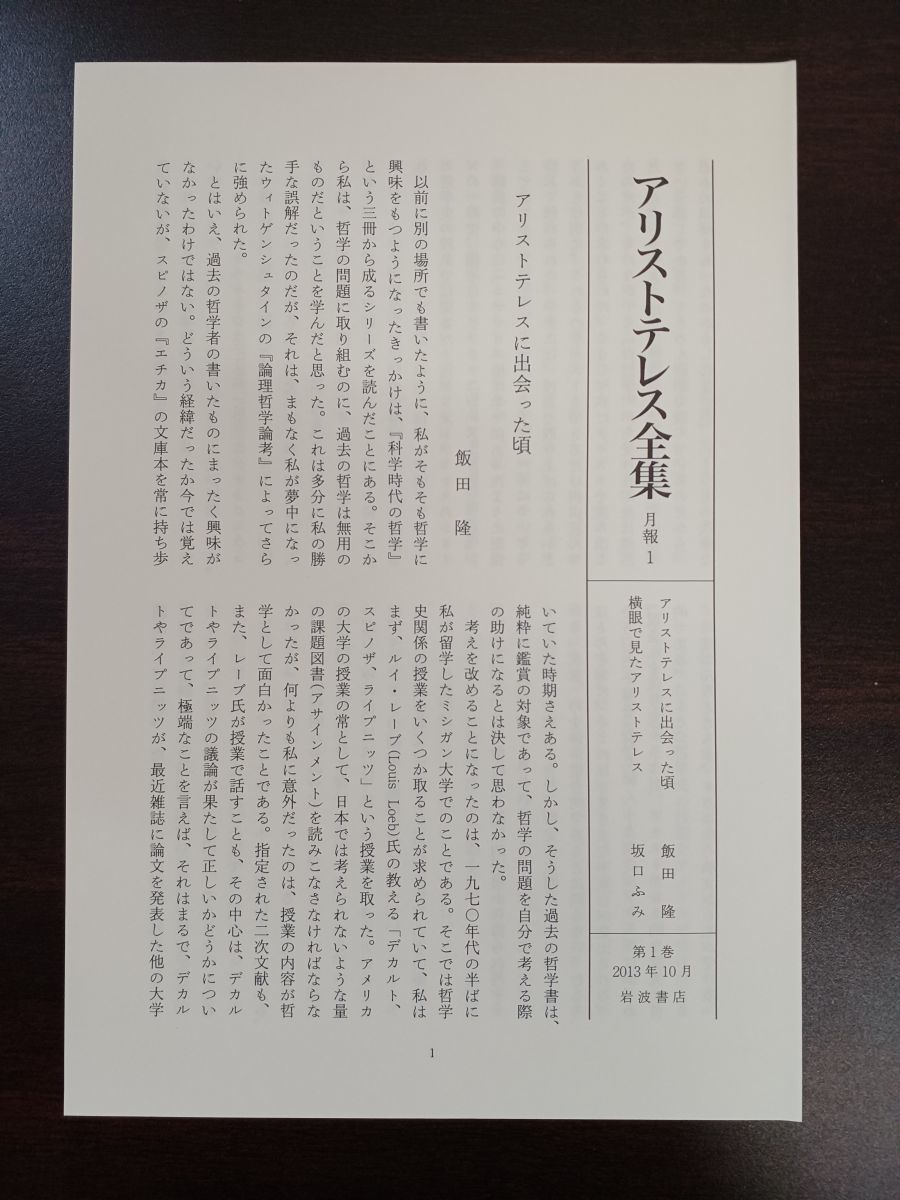 アリストテレス全集
月報1
アリストテレスに出会った頃 飯田 隆
横眼で見たアリストテレス 坂口ふみ
第1巻
2013年10月
岩波書店
アリストテレスに出会った頃
飯田 隆
以前に別の場所でも書いたように、私がそもそも哲学に
興味をもつようになったきっかけは、『科学時代の哲学』
という三冊から成るシリーズを読んだことにある。そこか
ら私は、哲学の問題に取り組むのに、過去の哲学は無用の
ものだということを学んだと思った。これは多分に私の勝
手な誤解だったのだが、それは、まもなく私が夢中になっ
たウィトゲンシュタインの『論理哲学論考』によってさら
に強められた。
とはいえ、過去の哲学者の書いたものにまったく興味が
なかったわけではない。どういう経緯だったか今では覚え
ていないが、スピノザの『エチカ』の文庫本を常に持ち歩
いていた時期さえある。しかし、そうした過去の哲学書は、
純粋に鑑賞の対象であって、哲学の問題を自分で考える際
の助けになるとは決して思わなかった。
考えを改めることになったのは、一九七〇年代の半ばに
私が留学したミシガン大学でのことである。そこでは哲学
史関係の授業をいくつか取ることが求められていて、私は
まず、ルイ・レーブ(Louis Loeb)氏の教える「デカルト、
スピノザ、ライプニッツ」という授業を取った。アメリカ
の大学の授業の常として、日本では考えられないような量
の課題図書(アサインメント)を読みこなさなければならな
かったが、何よりも私に意外だったのは、授業の内容が哲
学として面白かったことである。指定された二次文献も、
また、レーブ氏が授業で話すことも、その中心は、デカル
トやライプニッツの議論が果たして正しいかどうかについ
てであって、極端なことを言えば、それはまるで、デカル
トやライプニッツが、最近雑誌に論文を発表した他の大学
1